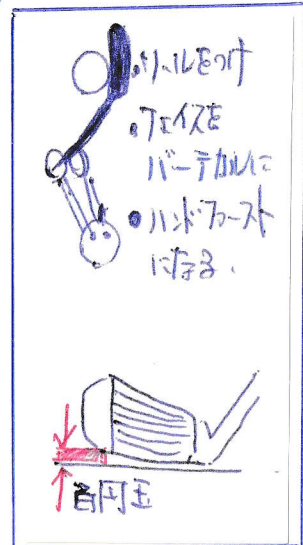 ・をつけ
・フェイスを
バーテカルに
・ハンドファースト
になる.
百円玉